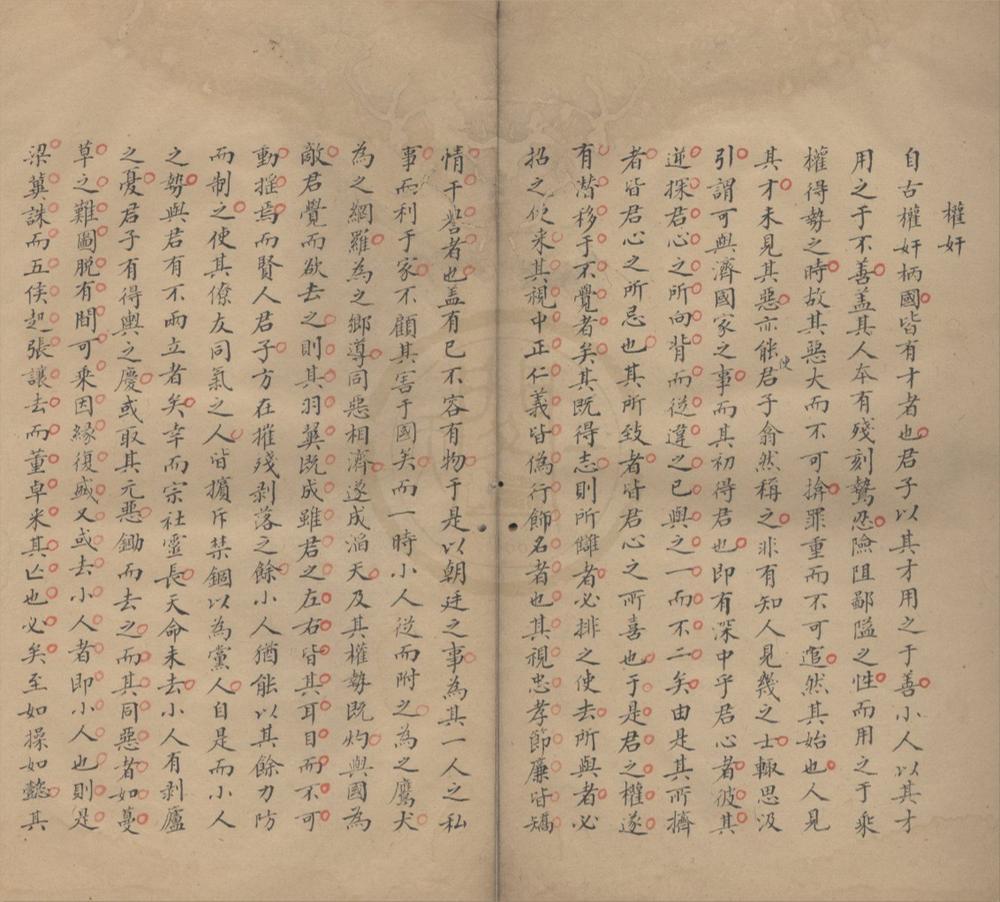 權奸
自古權奸柄國皆有才者也君子以其才用之于善小人以其才
用之于不善盖其人本有殘刻鷙忍險阻鄙隘之性而用之于乘
權得勢之時故其惡大而不可揜罪重而不可逭然其始也人見
其才未見其惡亦能使君子翕然稱之非有知人見幾之士輒思汲
引謂可與濟國家之事而其初得君也即有深中乎君心者彼其
逆探君心之所向背而從違之已與之一而不二矣由是其所擠
者皆君心之所忌也其所致者皆君心之所喜也于是君之權遂
有潛移于不覺者矣其既得志則所讎者必排之使去所與者必
招之使来其視中正仁義皆偽行飾名者也其視忠孝節廉皆矯
情干譽者也盖有已不容有物于是以朝廷之事為其一人之私
事而利于家不顧其害于國矣而一時小人從而附之為之鷹犬
為之網羅為之鄉導同惡相濟遂成滔天及其權勢既灼與國為
敵君覺而欲去之則其羽翼既成雖君之左右皆其耳目而不可
動揺焉而賢人君子方在摧殘剥落之餘小人猶能以其餘力防
而制之使其僚友同氣之人皆擯斥禁錮以為黨人自是而小人
之勢與君有不兩立者矣幸而宗社靈長天命未去小人有剥廬
之憂君子有得輿之慶或取其元惡鋤而去之而其同惡者如蔓
草之難圖脱有間可乘因緣復盛又或去小人者即小人也則是
梁蓝誅而五侯起張讓去而董卓来其亡也必矣至如操如懿其